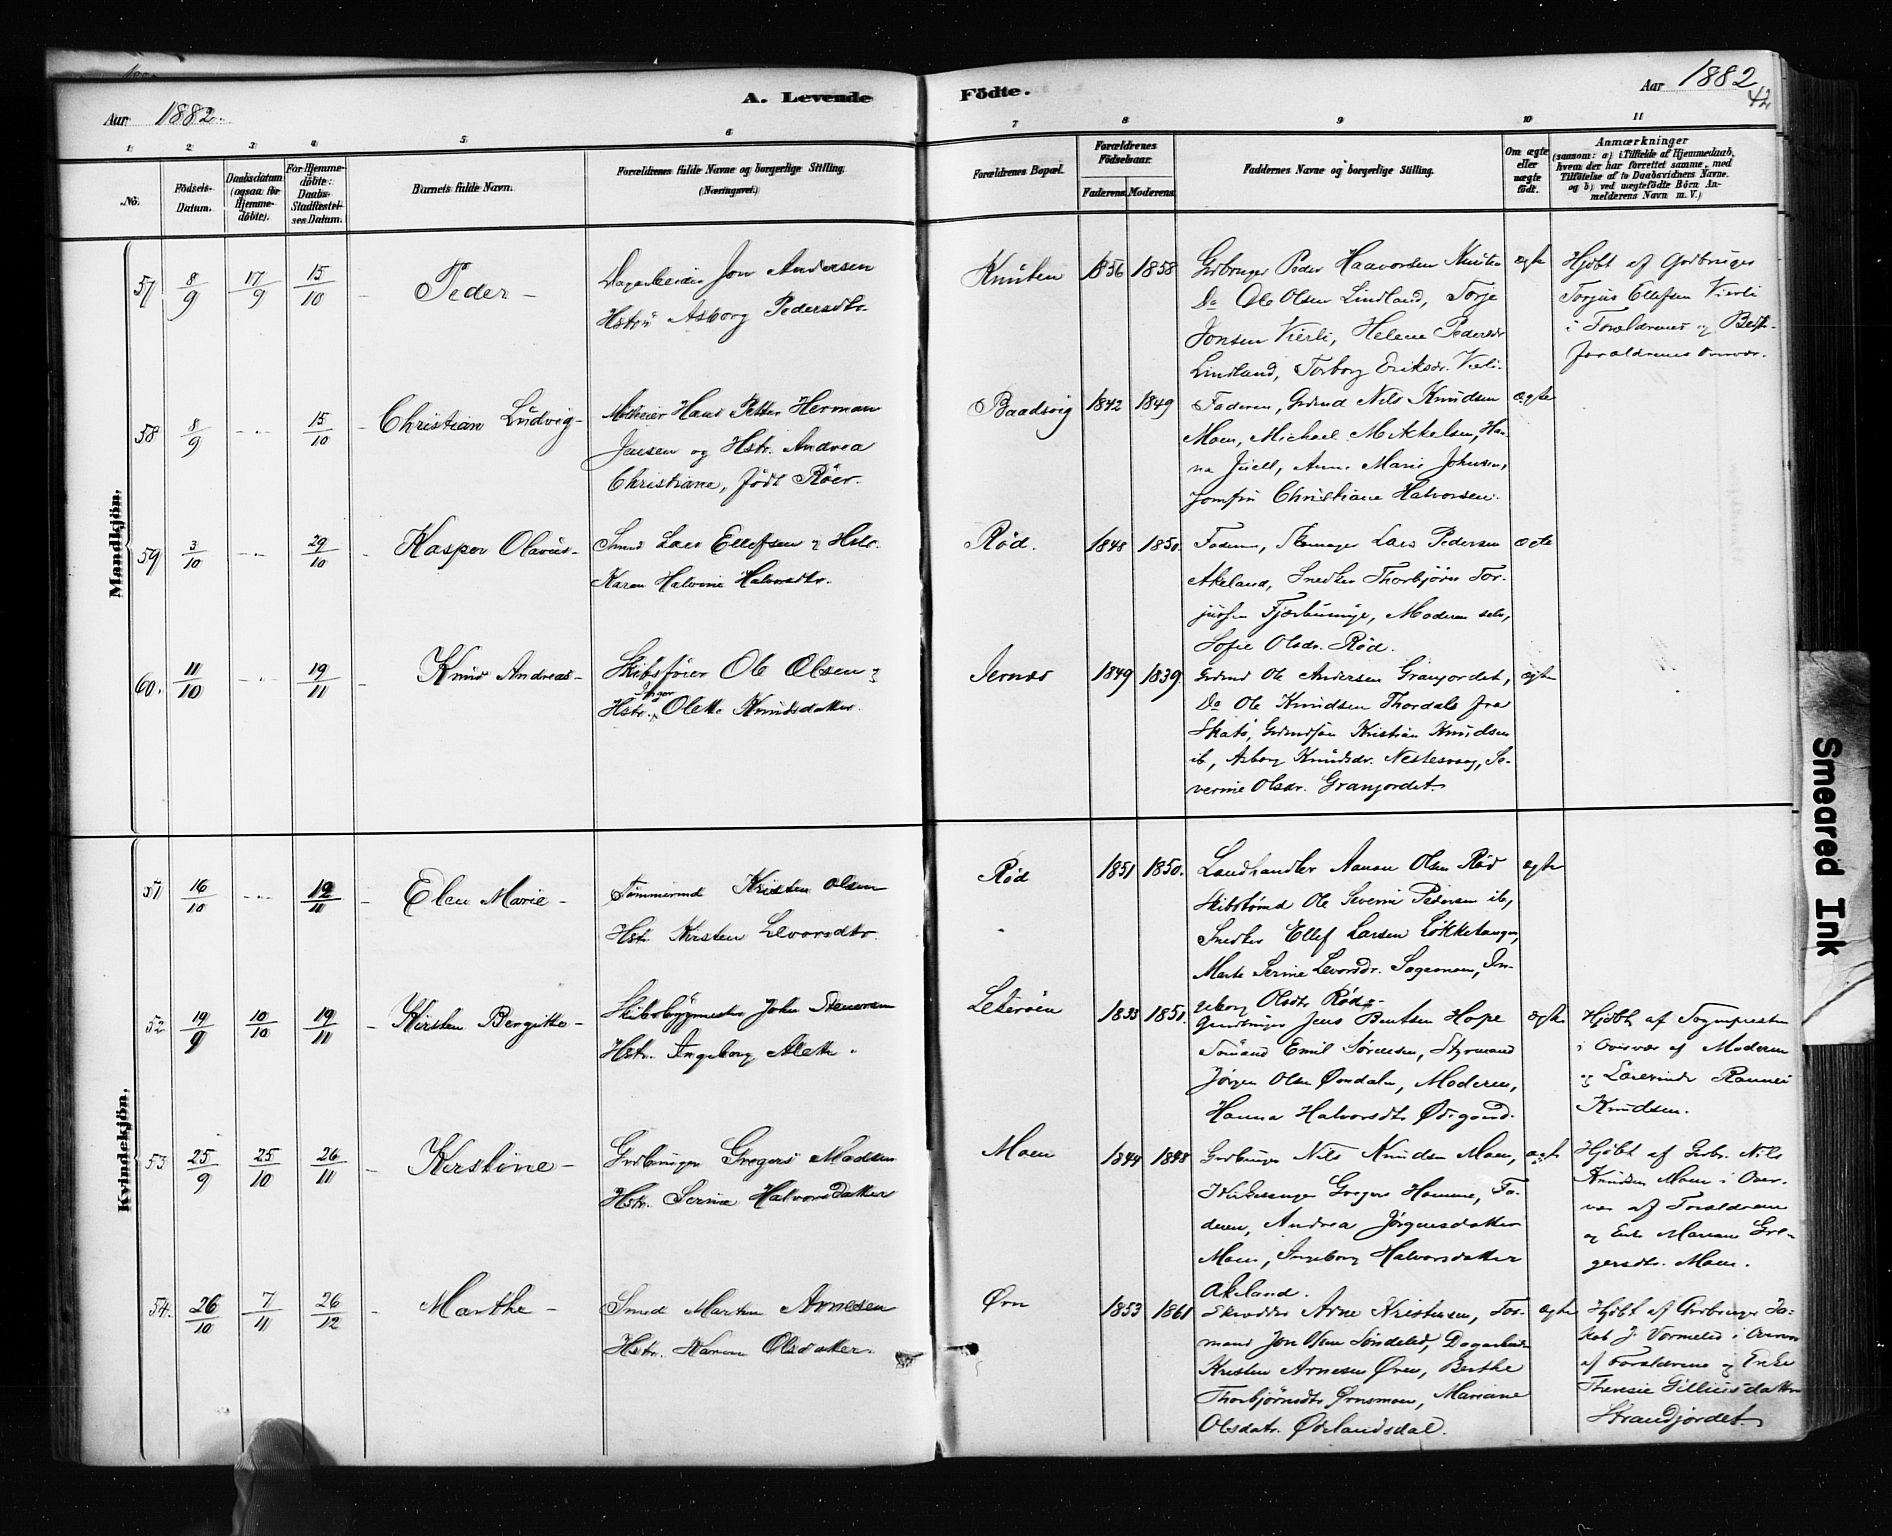 Aar 1882.
A. Levende
Fødte.
Aar 1882
42
1. 2. 3. 4. 5. 6. 7 8 9 10 11
No.
Födsels-
Datum.
Daabsdatum
(ogsaa for
Hjemme-
döbte).
For Hjemme-
döbte:
Daabs-
Stadfæstel-
ses Datum.
Barnets fulde Navn.
Forældrenes fulde Navne og borgerlige Stilling.
(Næringsvei.)
Forældrenes Bopæl.
Forældrenes
Födselsaar.
Faderens. Moderens.
Faddernes Navne og borgerlige Stilling.
Om ægte
eller
uægte
født.
Anmærkninger
(saasom: a) i Tilfælde af Hjemmedaab,
hvem der har forrettet samme, med
Tilföielse af to Daabsvidners Navne.
og b) ved uægtefödte Börn An-
melderens Navn m. V.)
Mandkjön.
57 8/9 17/9 15/10 Peder
Dagarbeider Jon Andersen
Hstrü Asborg Pedersdtr.
Knuten 1856 1858
Grdbruger Peder Haavorsen Knuten
Do Ole Olsen Lindland, Torje
Jonsen Vierli, Helene Pedersdr
Lindland, Torborg Eriksdr. Vierli.
ægte
Hjdbt af Grdbruger
Torjus Ellefsen Vierli
i Forældrenes og Bedste-
forældrenes Overvær.
58 8/9 15/10 Christian Ludvig
Hans Petter Herman
Jensen og Hstr. Andrea
Christiane, født Röer.
Baadsvig 1842 1849
Faderen, Grdmd Nils Knudsen
Moen, Michael Mikkelsen, Han-
na Juell, Anne Marie Johnsen,
Jomfru Christiane Halvorsen.
ægte
59 3/10 29/10 Kasper Olavus
Smed Lars Ellefsen og Hstr.
Karen Halvine Halvorsdtr.
Rød. 1848 1850.
Faderen, Skomager Lars Pedersen
Akeland, Snedker Thorbjørn Tor-
jusen Fjærbuvige, Moderen selv,
Sofie Olsdr. Rød.
ægte
60. 11/10 19/11 Knud Andreas
Skibsfører Ole Olsen og
Hstr. Inger Olette Knudsdatter.
Jernæs 1849 1839.
Grdmd Ole Andersen Granjordet,
Do Ole Knudsen Thordals fra
Skatö, Grdmdsön Kristian Knudsen
ib, Asborg Knudsdr. Nestesvaag, Se-
verine Olsdr. Granjordet.
ægte
Kvindekjön.
51 16/10 19/11 Elen Marie
Tømmermd Kristen Olsen
Hstr Kirsten Levorsdtr.
Rød 1851 1850.
Landhandler Aanon Olsen Rød
Skibstømd Ole Severin Pedersen ib,
Snedker Ellef Larsen Løkketangen,
Marte Serine Levorsdr. Sageneen, In-
geborg Olsdtr Rød.
ægte
52 19/9 10/10 19/11 Kirsten Bergitte
Skibsbygmester John Stenersen
Hstr. Ingeborg Alette.
Leteröen 1833 1851.
Grundbruger Jens Bentsen Hope
Sømand Emil Sørensen, Styrmand
Jørgen Olsen Øvredalen, Moderen,
Hanna Halvorsdtr Ødegaard.
ægte
Hjdbt af Sognepresten
i Overvær af Moderen
og Lærerinde Rannei
Knudsen.
53 25/9 25/10 26/11 Kirstine
Grdbruger Gregers Madsen
Hstr. Serine Halvorsdatter
Moen 1844 1848
Grdbruger Nils Knudsen Moen,
Kirkesanger Gregers Homme, Fa-
deren, Andrea Jørgensdatter
Moen, Ingeborg Halvorsdatter
Akeland.
ægte
Hjdbt af Grbr. Nils
Knudsen Moen i Over-
vær af Forældrene
og Enke Mariane Gre-
gersdtr. Moen.
54. 26/10 7/11 26/12 Marthe
Smed Martin Arnesen
Hstr. Karen Olsdatter.
Ørn 1853 1861
Skrædder Arne Kristensen, For-
mand Jon Olsen Søndeled, Dagarbeider
Kristen Arnesen Øren, Berthe
Thorbjørnsdtr Ørnsmoen, Mariane
Olsdatr. Ødelandsdal.
ægte
Hjdbt af Grdbruger Ja-
kob J. Vormeled i Overvær
af Forældrene og Enke
Theresie Gilliusdatter
Strandjordet.
Smeared Ink